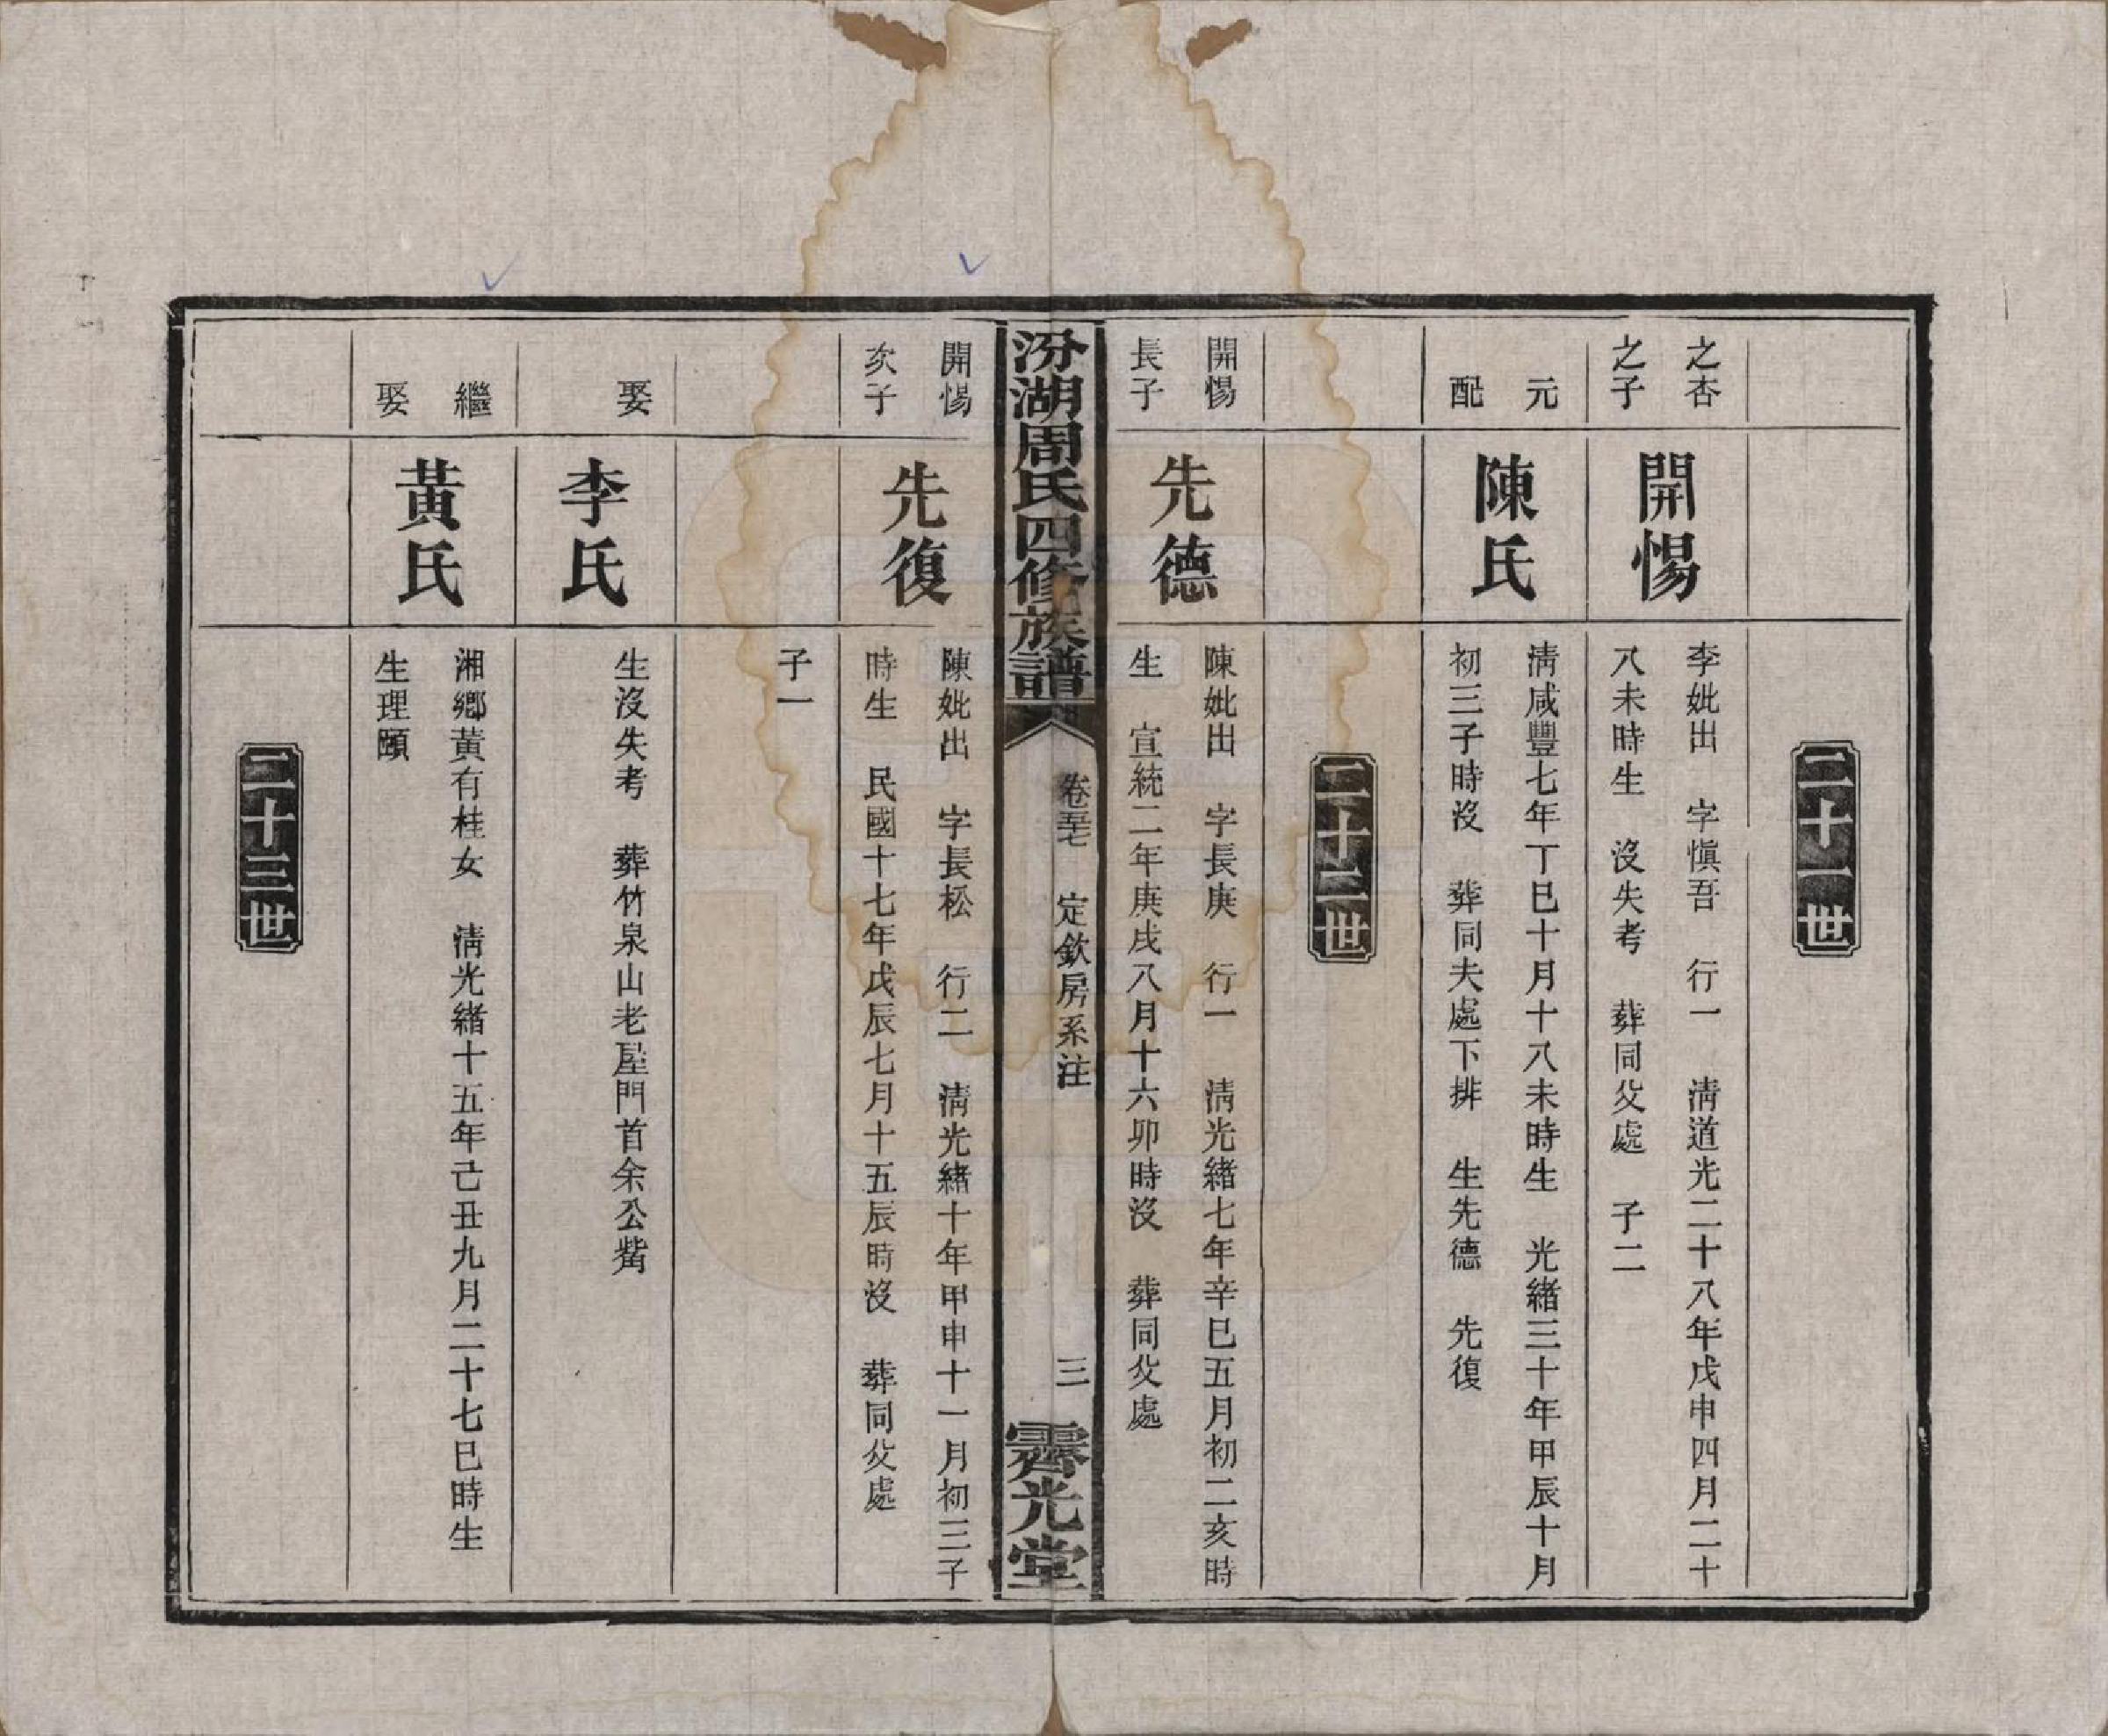 二十一世
之杏
之子
開惕
李妣出　字愼吾　行一　淸道光二十八年戊申四月二十
八未時生　沒失考　葬同父處　子二
元
配
陳氏
淸咸豐七年丁巳十月十八未時生　光緒三十年甲辰十月
初三子時沒　葬同夫處下排　生先德　先復
二十二世
開惕
長子
先德
陳妣出　字長庚　行一　淸光緒七年辛巳五月初二亥時
生　宣統二年庚戌八月十六卯時沒　葬同父處
汾湖周氏四修族譜
卷五十七　定欽房系注
三
霽光堂
開惕
次子
先復
陳妣出　字長松　行二　淸光緒十年甲申十一月初三子
時生　民國十七年戊辰七月十五辰時沒　葬同父處
子一
娶
李氏
生沒失考　葬竹泉山老屋門首余公嘴
繼
娶
黃氏
湘鄉黃有桂女　淸光緒十五年己丑九月二十七巳時生
生理頤
二十三世